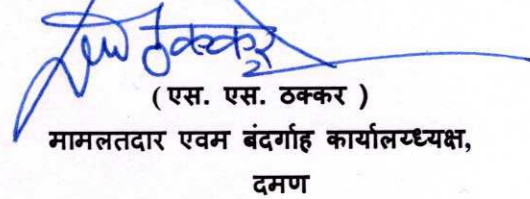 ठक्कर
( एस. एस. ठक्कर )
मामलतदार एवम बंदर्गाह कार्यालय्ध्यक्ष,
दमण